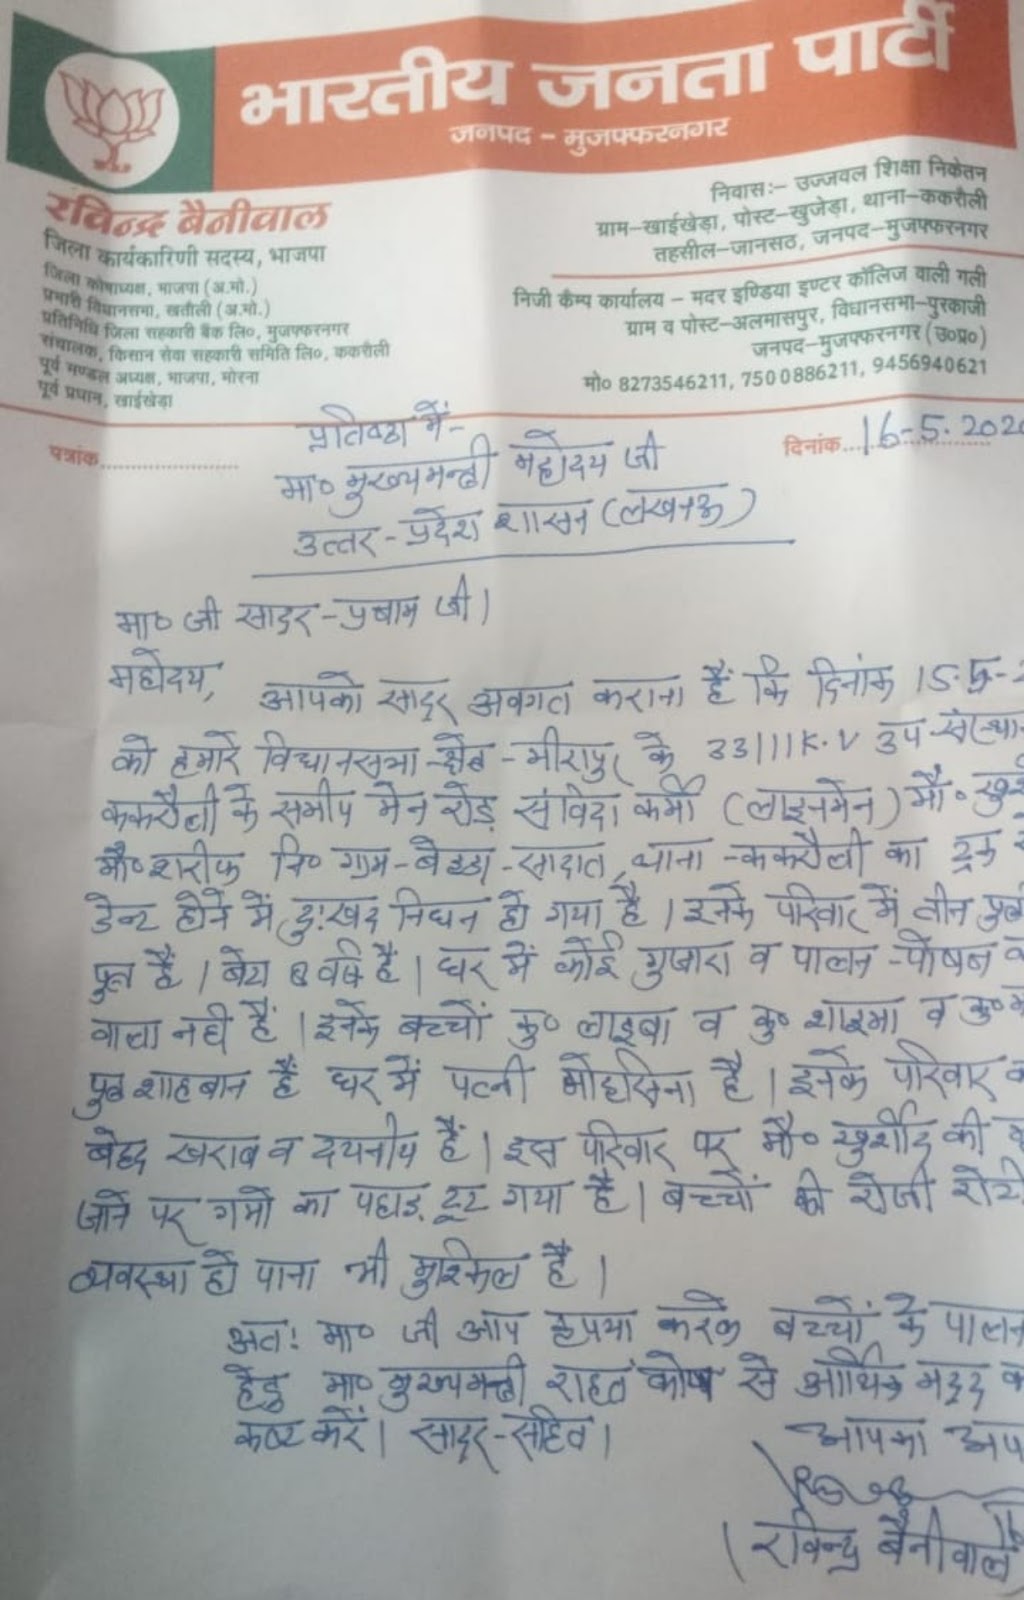 भारतीय जनता पार्टी
जनपद – मुजफ्फरनगर
रविन्द्र बैनीवाल
जिला कार्यकारिणी सदस्य, भाजपा
जिला कोषाध्यक्ष, भाजपा (अ.मो.)
प्रभारी विधानसभा, खतौली (अ.मो.)
प्रतिनिधि जिला सहकारी बैंक लि०, मुजफ्फरनगर
संचालक, किसान सेवा सहकारी समिति लि०, ककरौली
पूर्व मण्डल अध्यक्ष, भाजपा, मोरना
पूर्व प्रधान, खाईखेड़ा
निवास:– उज्जवल शिक्षा निकेतन
ग्राम–खाईखेड़ा, पोस्ट–खुजेड़ा, थाना–ककरौली
तहसील–जानसठ, जनपद–मुजफ्फरनगर
निजी कैम्प कार्यालय – मदर इण्डिया इण्टर कॉलिज वाली गली
ग्राम व पोस्ट–अलमासपुर, विधानसभा–पुरकाजी
जनपद–मुजफ्फरनगर (उ०प्र०)
मो० 8273546211, 7500886211, 9456940621
पत्रांक....................
दिनांक....16-5-2020
प्रतिष्ठा में-
मा० मुख्यमन्त्री महोदय जी
उत्तर-प्रदेश शासन (लखनऊ)
मा० जी सादर-प्रणाम जी।
महोदय,
आपको सादर अवगत कराना है कि दिनांक 15-5-
को हमारे विधानसभा-क्षेत्र-मीरापुर के 33/11K.V उप-संस्थान
ककरौली के समीप मेन रोड़ संविदा कर्मी (लाइनमेन) मौ०
मौ० शरीफ नि० ग्राम-बेहडा-सादात, थाना-ककरौली का ट्रक
डेन्ट होने में दुःखद निधन हो गया है। इनके परिवार में तीन
पुत्र है। बेटा 8 वर्ष है। घर में कोई गुजारा व पालन-पोषन
वाला नही है। इनके बच्चों कु० लाइबा व कु० शाइमा व कु०
पुत्र शाहबान है घर में पत्नी मोहसिना है। इनके परिवार
बेहद खराब व दयनीय है। इस परिवार पर मौ० खुर्शीद की
जाने पर गमों का पहाड़ टूट गया है। बच्चों की रोजी रोटी
व्यवस्था हो पाना भी मुश्किल है।
अतः मा० जी आप कृपया करके बच्चों के पालन
हेतु मा० मुख्यमन्त्री राहत कोष से आर्थिक मदद
कष्ट करें। सादर-सहित।
आपका
(रविन्द्र बैनीवाल)